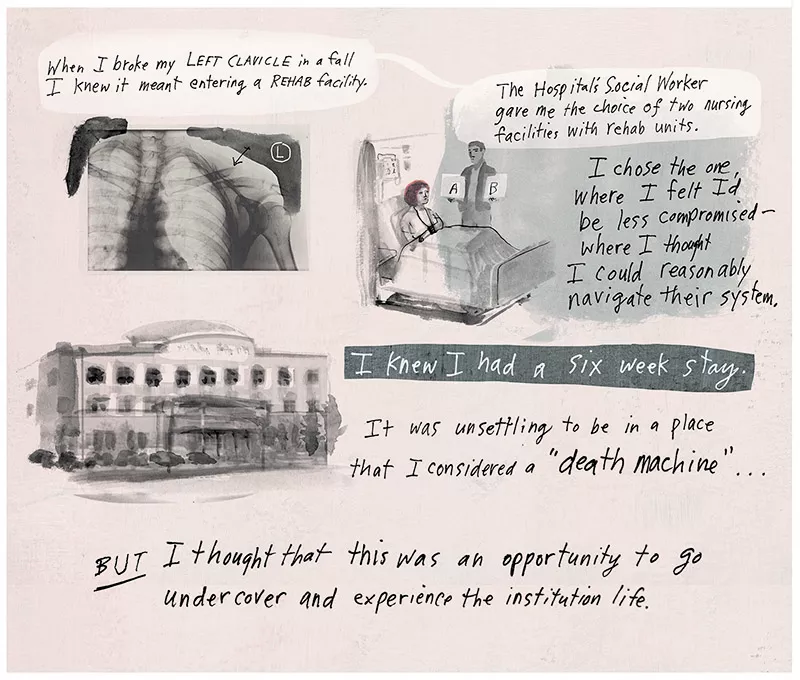 When I broke my LEFT CLAVICLE in a fall
I knew it meant entering a REHAB facility.
The Hospital's Social Worker
gave me the choice of two nursing
facilities with rehab units.
L
A B
I chose the one,
where I felt I'd
be less compromised—
where I thought
I could reasonably
navigate their system.
I knew I had a six week stay.
It was unsettling to be in a place
that I considered a "death machine"...
BUT I thought that this was an opportunity to go
undercover and experience the institution life.